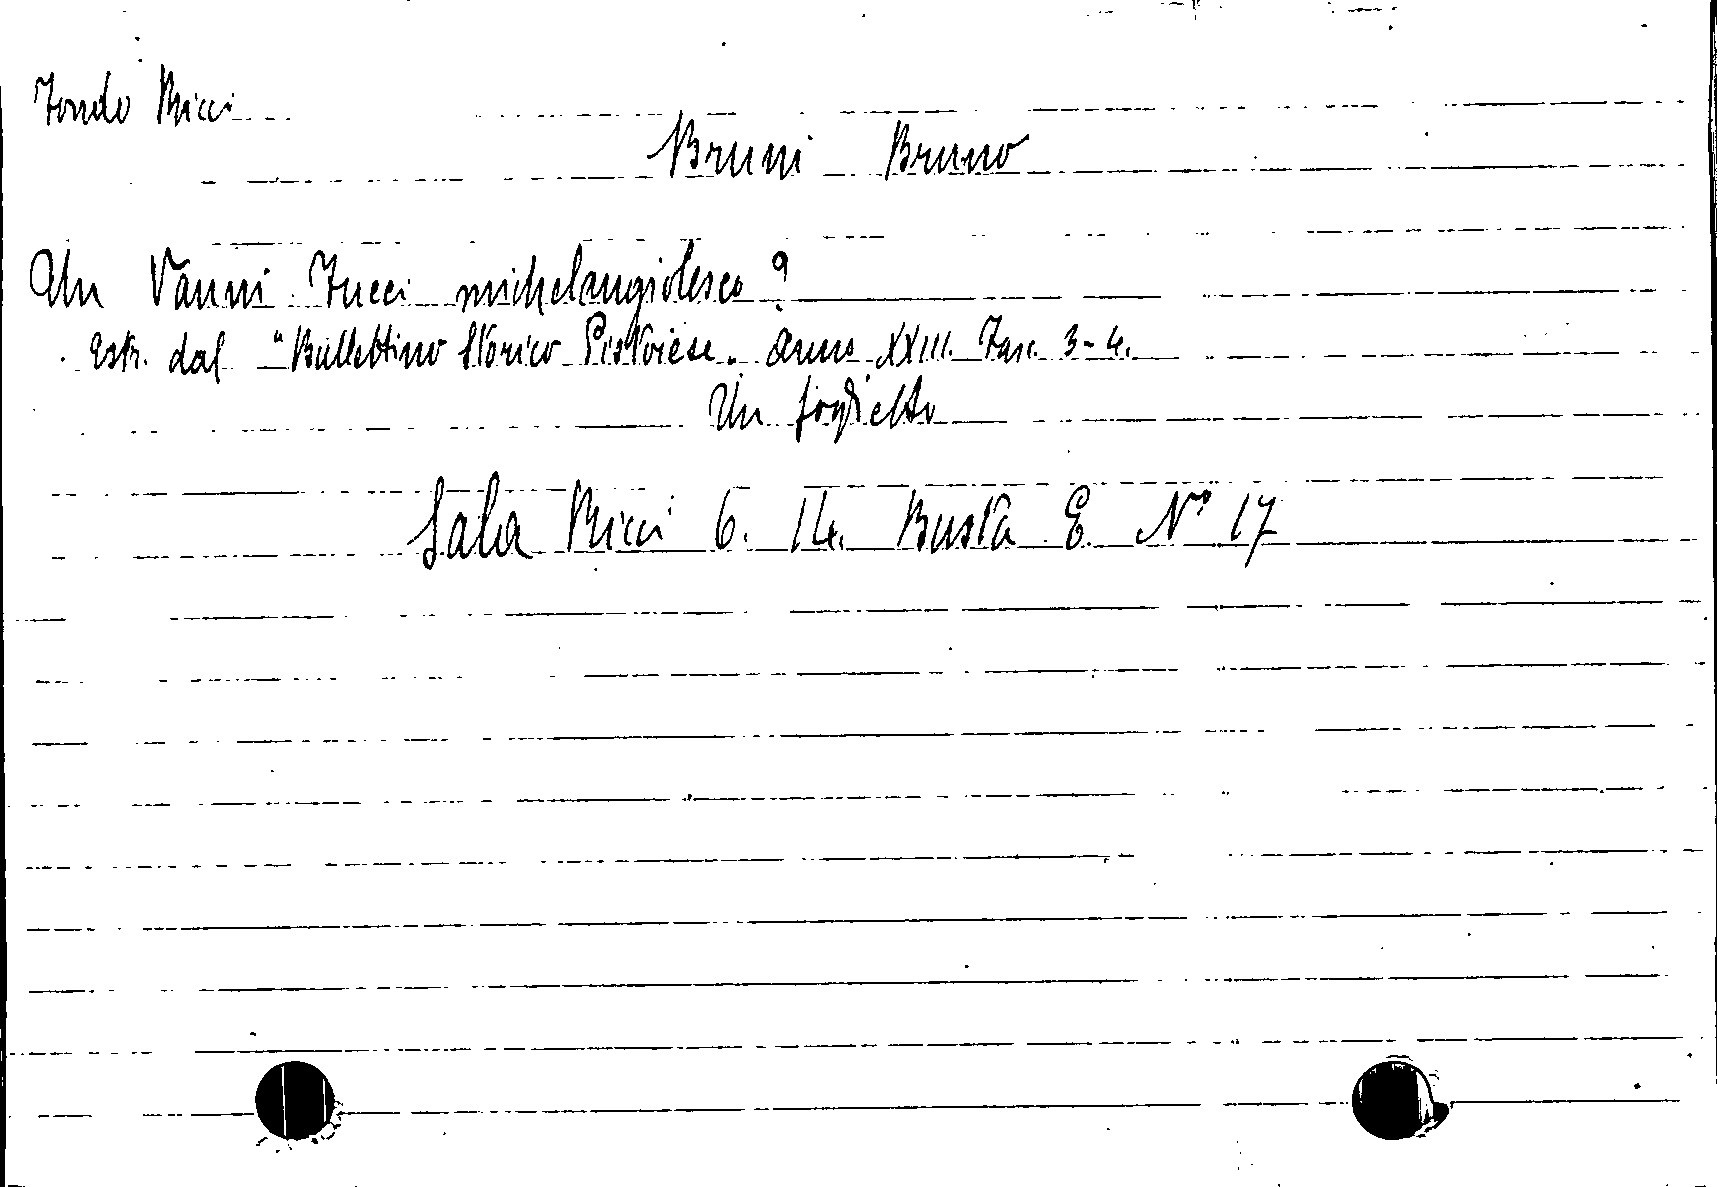 Fondo Ricci
Bruni Bruno
Un Vanni Fucci michelangiolesco?
Estr. dal "Bullettino Storico Pistoiese. Anno XXIII. Fasc. 3-4.
Un foglietto
Sala Ricci 6. 14. Busta E. N° 17